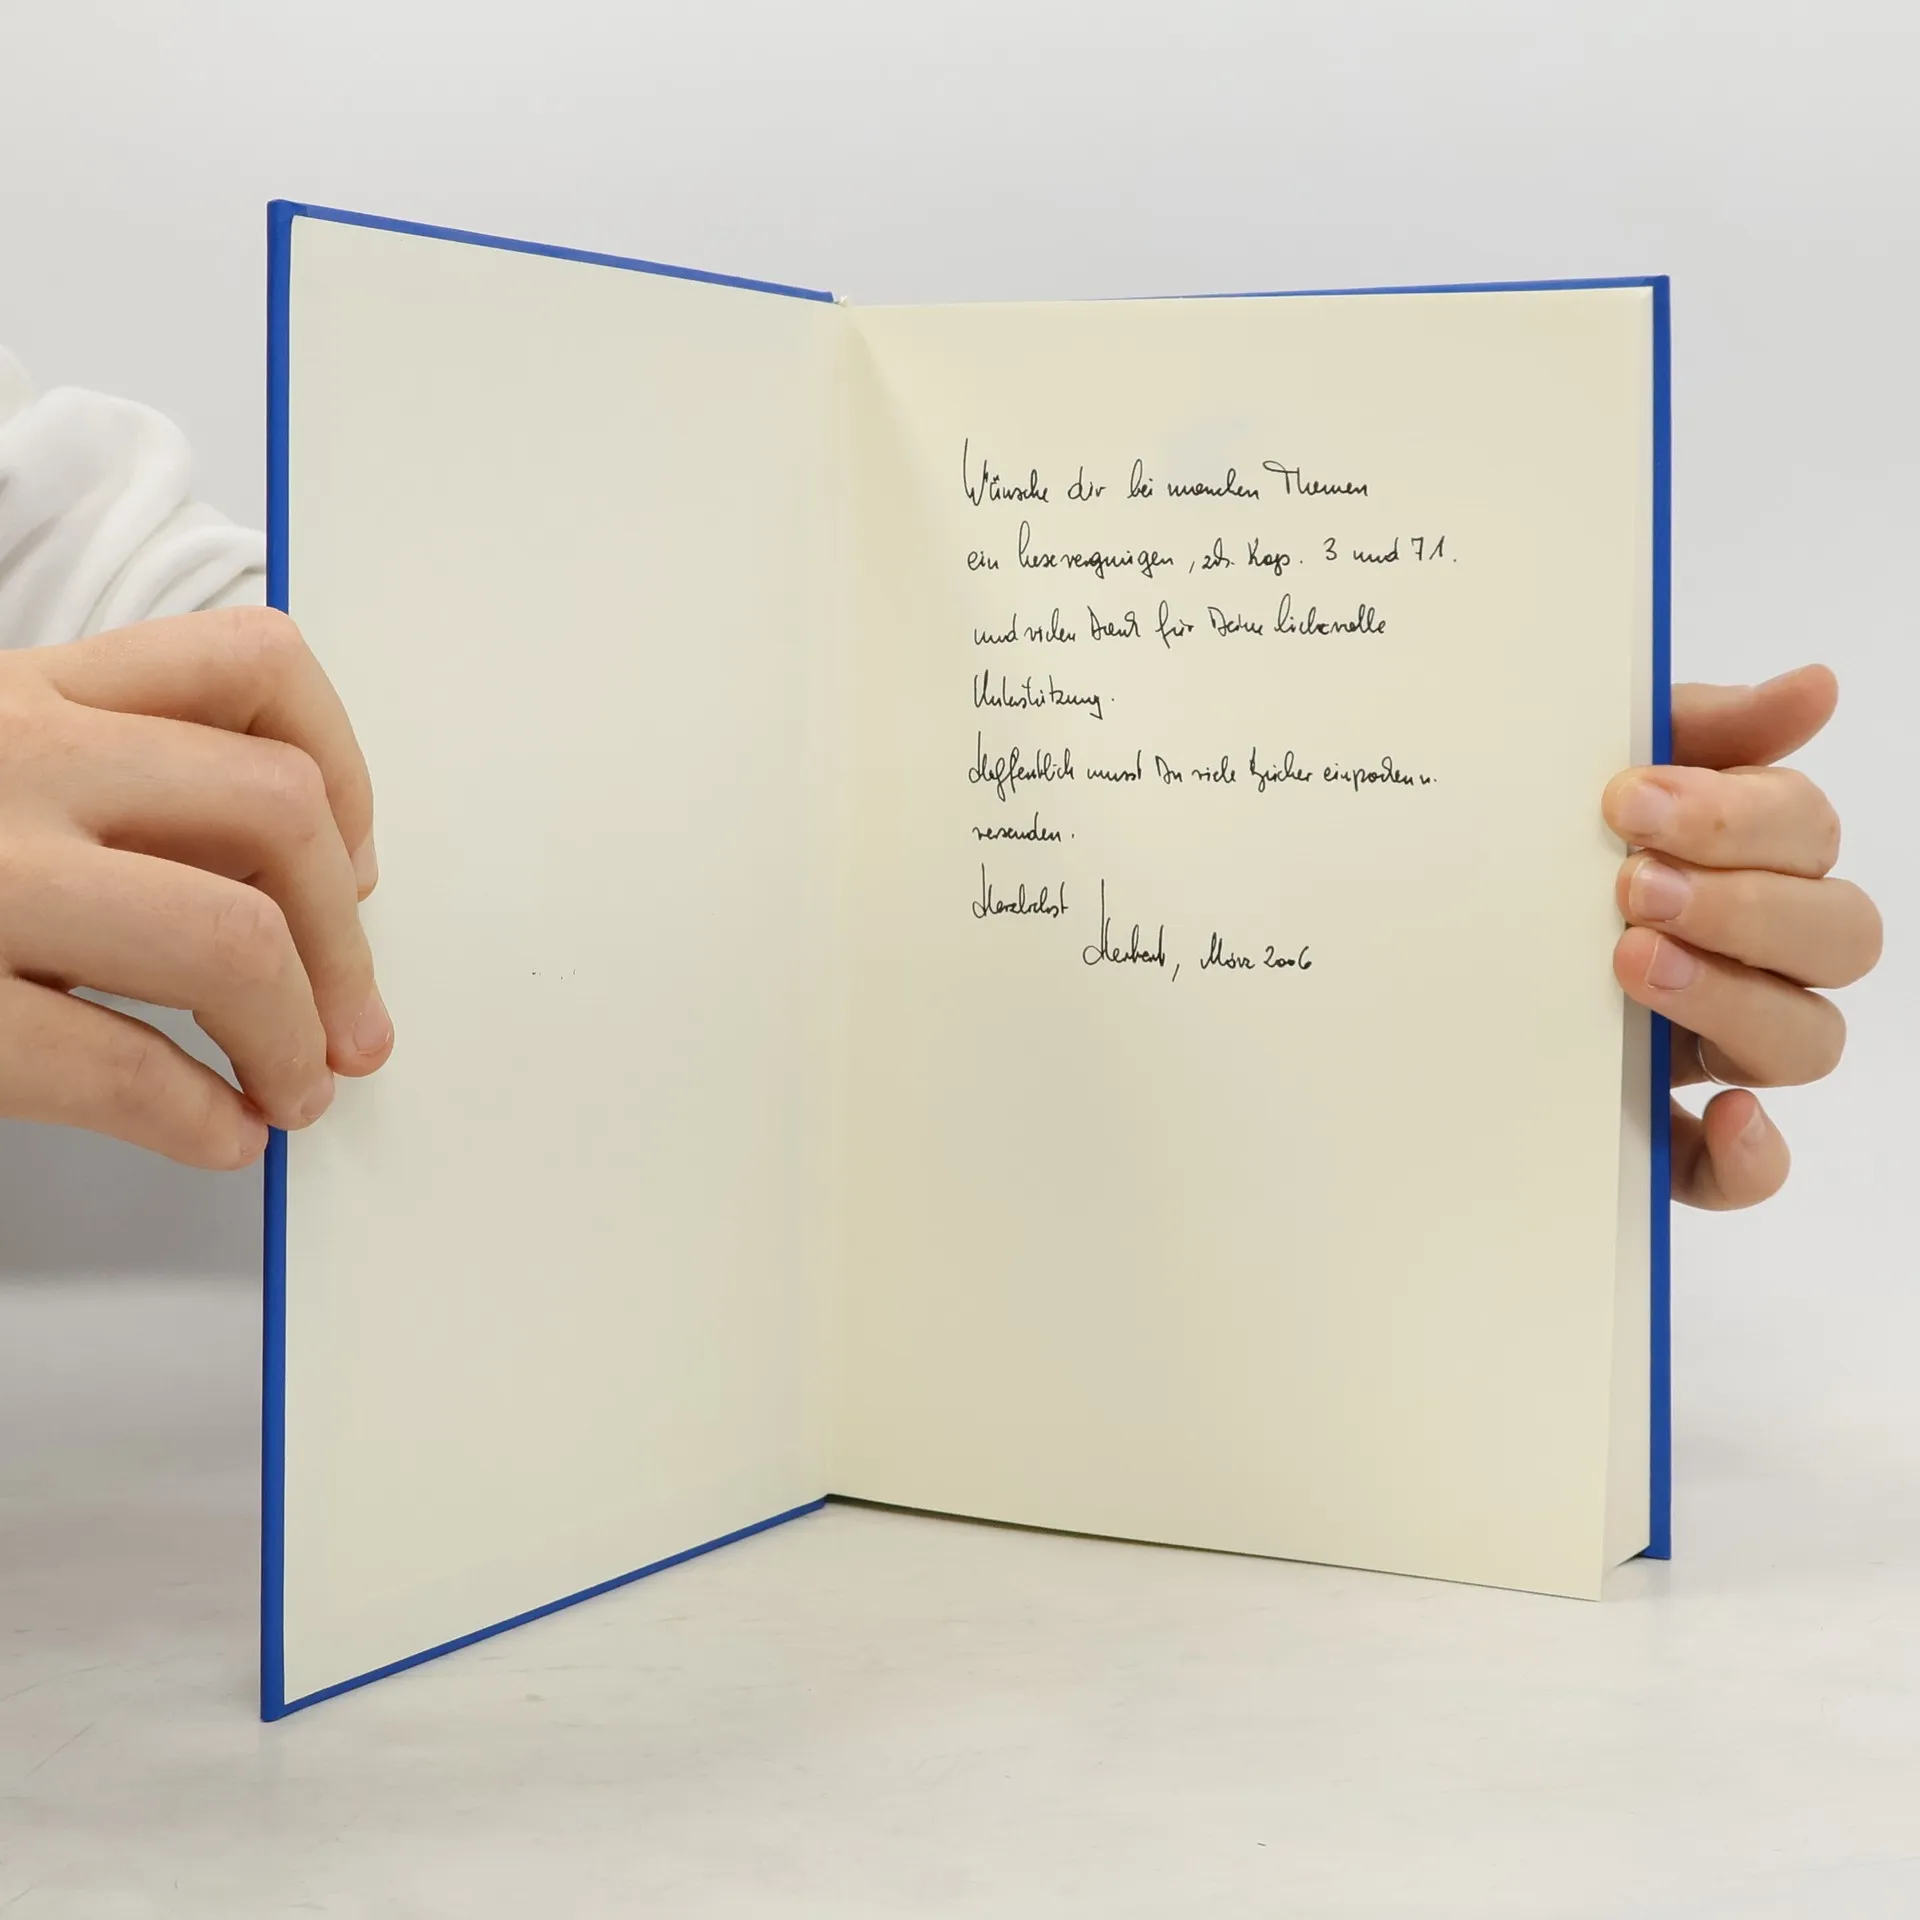 Wünsche dir bei manchen Themen
ein Lesevergnügen, Kap. 3 und 71.
und vielen Dank für Deine liebevolle
Unterstützung.
Hoffentlich musst Du viele Bücher einpacken u.
versenden.
Herzlichst
Herbert, März 2006